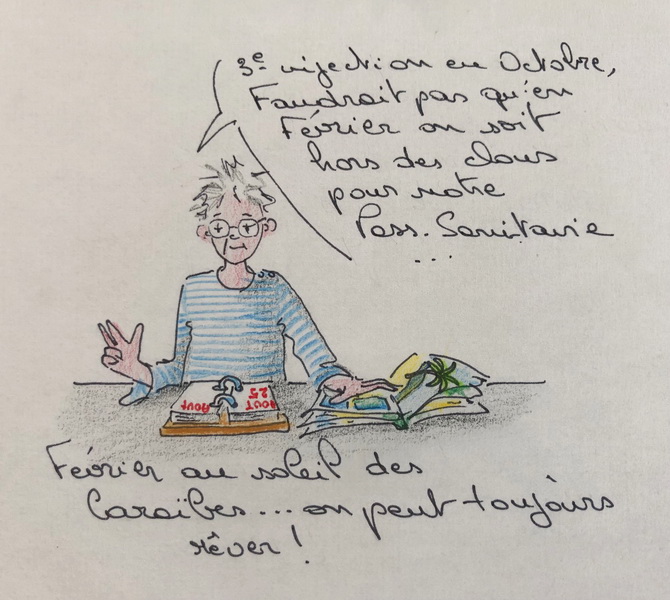 3e injection en Octobre,
Faudrait pas qu'en
Février on soit
hors des clous
pour notre
Pass. Sanitaire
...
AOUT
AOUT
25
Février au soleil des
Caraïbes... on peut toujours
rêver !